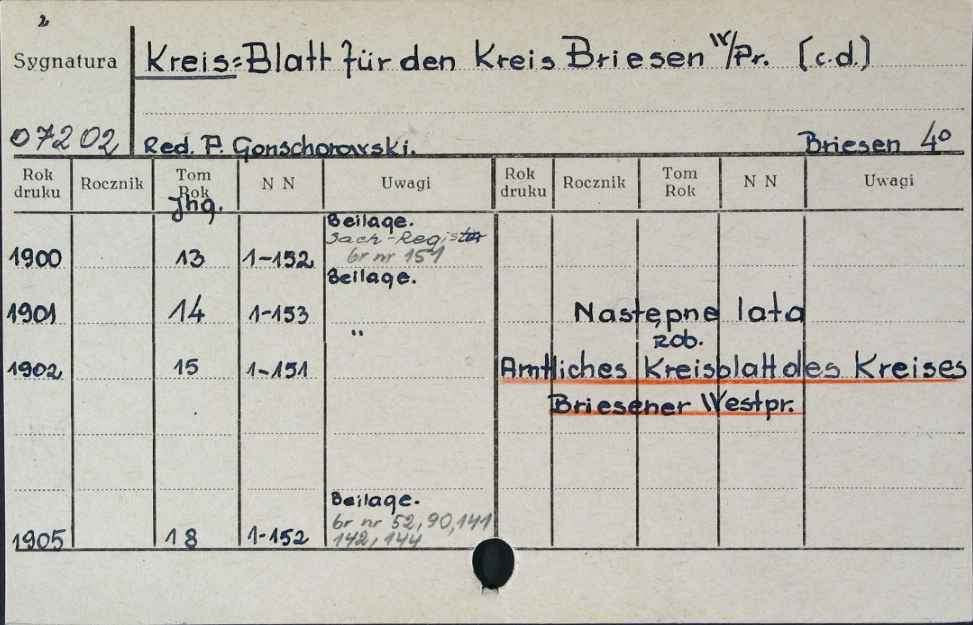 2
Sygnatura Kreis=Blatt für den Kreis Briesen W/Pr. (c.d.)
07202 Red. P. Gonschorowski. Briesen 4°
Rok druku Rocznik Tom Rok N N Uwagi Rok druku Rocznik Tom Rok N N Uwagi
Jhg.
Beilage.
Sach-Register
1900 13 1-152 br nr 151
Beilage.
1901 14 1-153 Następne lata
" zob.
1902 15 1-151 Amtliches Kreisblatt des Kreises
Briesener Westpr.
Beilage.
br nr 52, 90, 141
1905 18 1-152 142, 144